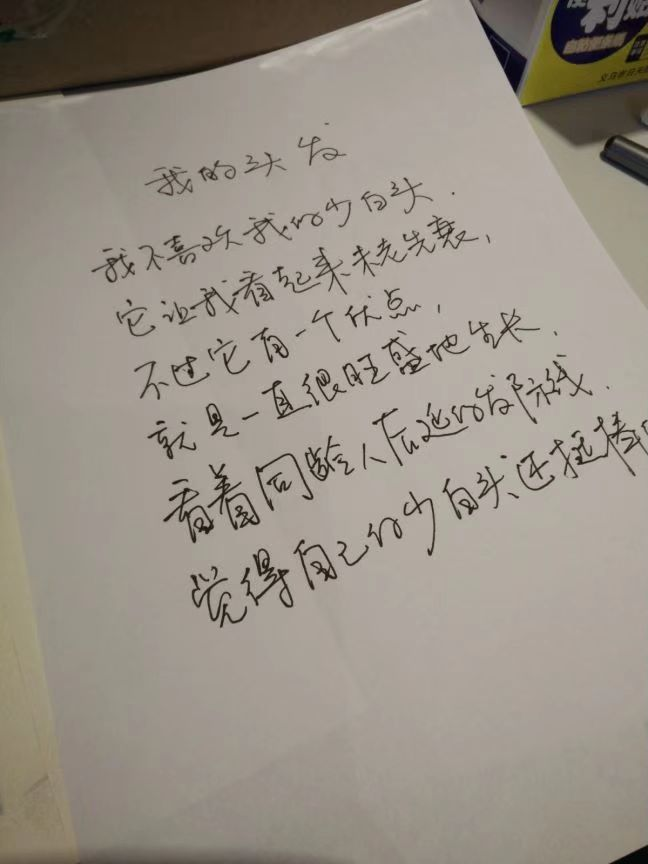 利
义乌市日天
我的头发
我不喜欢我的少白头.
它让我看起来未老先衰,
不过它有一个优点,
就是一直很旺盛地生长.
看着同龄人后延的发际线.
觉得自己的少白头还挺棒